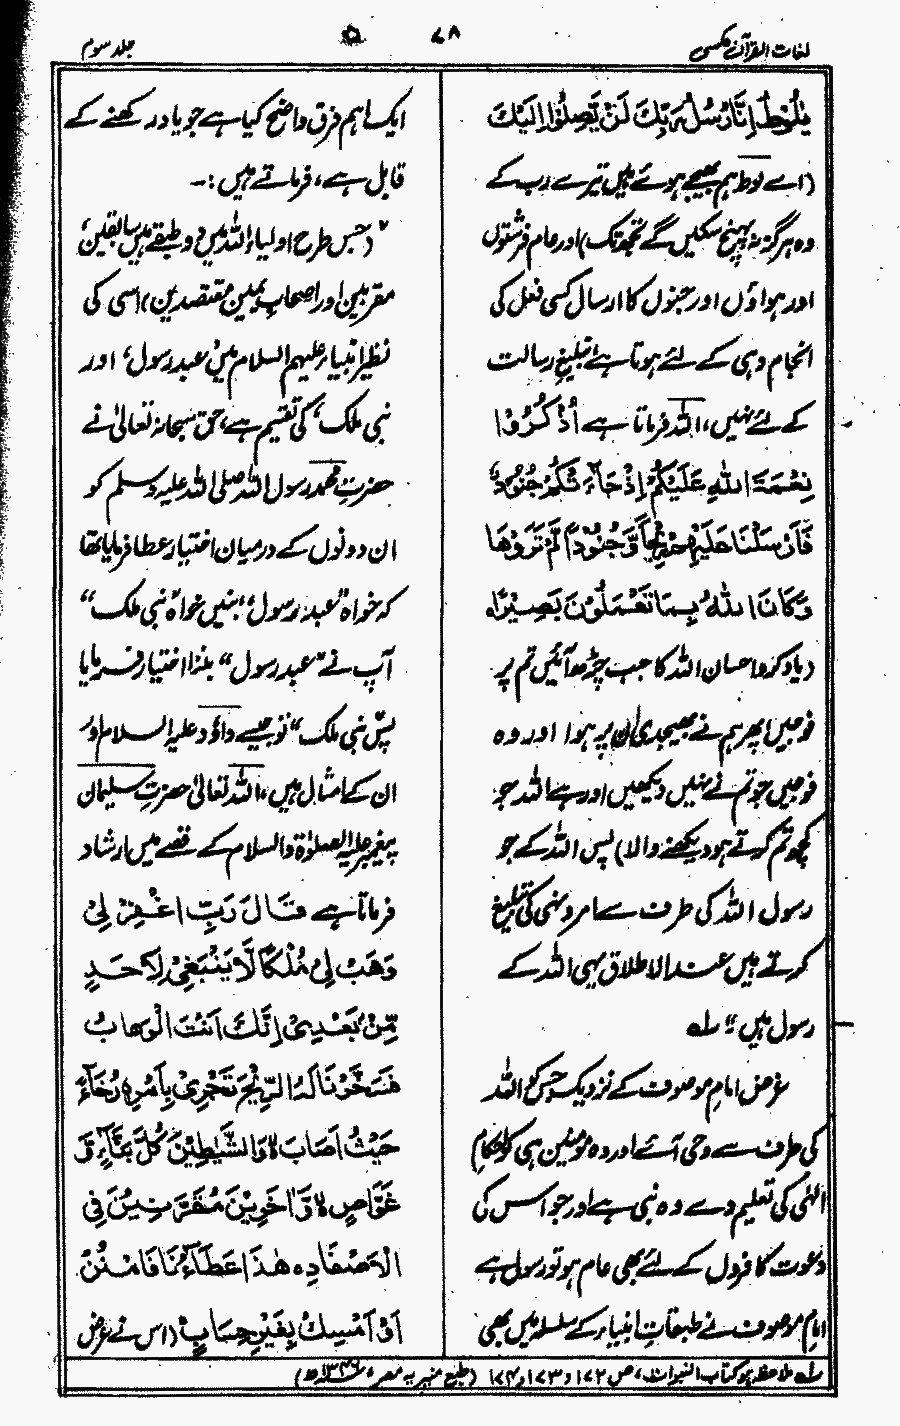 لغات القرآن مکمل
۷۸
جلد سوم
یٰلُوْطُ اِنَّا رُسُلُ رَبِّكَ لَنْ یَّصِلُوْا اِلَیْكَ
(اے لوط ہم بھیجے ہوئے ہیں تیرے رب کے
وہ ہرگز نہ پہنچ سکیں گے تجھ تک) اور عام فرشتوں
اور ہواؤں اور جنوں کا ارسال کسی فعل کی
انجام دہی کے لئے ہوتا ہے تبلیغ رسالت
کے لئے نہیں، اللہ فرماتا ہے اُذْكُرُوْا
نِعْمَةَ اللّٰهِ عَلَیْكُمْ اِذْ جَآءَتْكُمْ جُنُوْدٌ
فَاَرْسَلْنَا عَلَیْهِمْ رِیْحًا وَّ جُنُوْدًا لَّمْ تَرَوْهَا
وَ كَانَ اللّٰهُ بِمَا تَعْمَلُوْنَ بَصِیْرًاہ
(یاد کرو احسان اللہ کا جب چڑھ آئیں تم پر
فوجیں پھر ہم نے بھیجدی ان پر ہوا اور وہ
فوجیں جو تم نے نہیں دیکھیں اور ہے اللہ جو
کچھ تم کرتے ہو دیکھنے والا) پس اللہ کے جو
رسول اللہ کی طرف سے امر و نہی کی تبلیغ
کرتے ہیں عند الاطلاق یہی اللہ کے
رسول ہیں" لہ
غرض امام موصوف کے نزدیک جس کو اللہ
کی طرف سے وحی آئے اور وہ مومنین ہی کو احکام
الٰہی کی تعلیم دے وہ نبی ہے اور جو اس کی
دعوت کافروں کے لئے بھی عام ہو تو رسول ہے
امام موصوف نے طبقاتِ انبیاء کے سلسلہ میں بھی
ایک اہم فرق واضح کیا ہے جو یاد رکھنے کے
قابل ہے، فرماتے ہیں:-
"(جس طرح اولیاء اللہ میں دو طبقے ہیں سابقین،
مقربین اور اصحابِ یمین مقتصدین) اسی کی
نظیر انبیاء علیہم السلام میں عبد رسول، اور
نبی ملک، کی تقسیم ہے، حق سبحانہ تعالیٰ نے
حضرت محمد رسول اللہ صلی اللہ علیہ وسلم کو
ان دونوں کے درمیان اختیار عطا فرمایا تھا
کہ خواہ "عبد رسول، بنیں خواہ نبی ملک"
آپ نے "عبد رسول" بننا اختیار فرمایا
پس نبی ملک" تو جیسے داؤد علیہ السلام اور
ان کے امثال ہیں، اللہ تعالیٰ حضرت سلیمان
پیغمبر علیہ الصلوٰة والسلام کے قصے میں ارشاد
فرماتا ہے قَالَ رَبِّ اغْفِرْ لِیْ
وَهَبْ لِیْ مُلْكًا لَّا یَنْۢبَغِیْ لِاَحَدٍ
مِّنْۢ بَعْدِیْ اِنَّكَ اَنْتَ الْوَهَّابُ
فَسَخَّرْنَا لَهُ الرِّیْحَ تَجْرِیْ بِاَمْرِهٖ رُخَآءً
حَیْثُ اَصَابَ ہ وَالشَّیٰطِیْنَ كُلَّ بَنَّآءٍ وَّ
غَوَّاصٍ ہ وَّ اٰخَرِیْنَ مُقَرَّنِیْنَ فِی
الْاَصْفَادِہ هٰذَا عَطَآؤُنَا فَامْنُنْ
اَوْ اَمْسِكْ بِغَیْرِ حِسَابٍ (اس نے عرض
لہ ملاحظہ ہو کتاب النبوات، ص ۱۷۲ و ۱۷۳ و ۱۷۴ (طبع منیریہ مصر، ۱۳۴۶ھ)